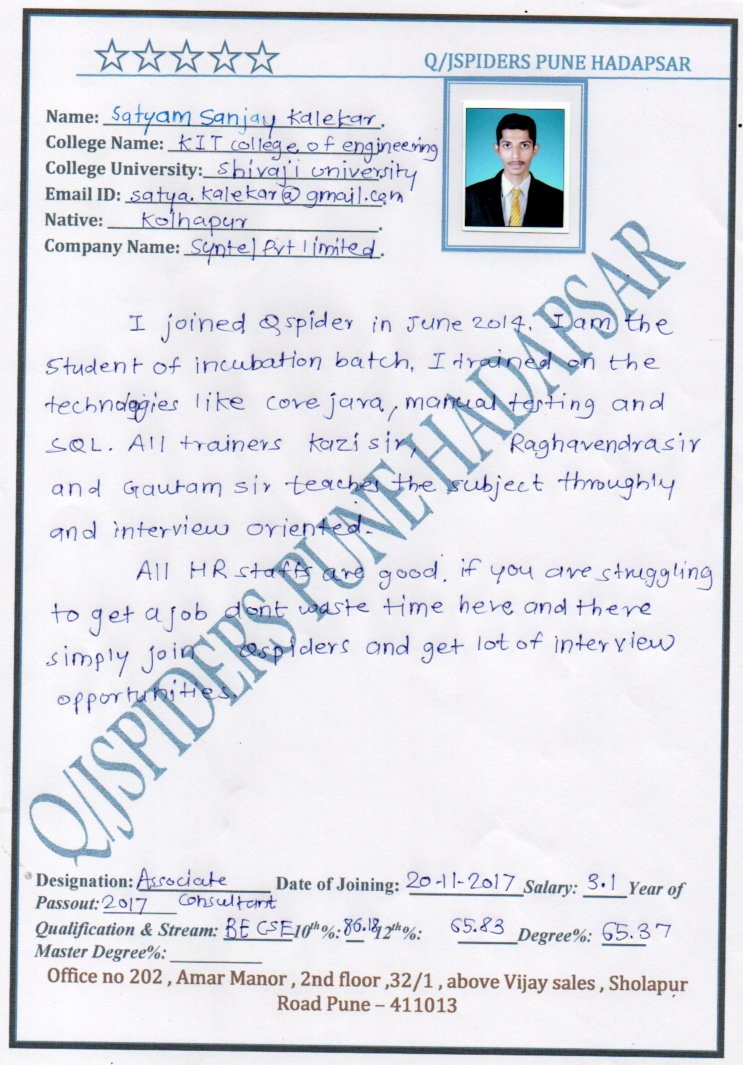 Q/JSPIDERS PUNE HADAPSAR
Name: Satyam Sanjay Kalekar.
College Name: KIT college of engineering
College University: Shivaji university
Email ID: satya.kalekar@gmail.com
Native: Kolhapur.
Company Name: Syntel Pvt limited.
I joined Qspider in June 2014. I am the
Student of incubation batch. I trained on the
technologies like core java, manual testing and
SQL. All trainers Kazi sir, Raghavendra sir
and Gautam sir teaches the subject throughly
and interview oriented.
All HR staffs are good. if you are struggling
to get a job dont waste time here and there
simply join Qspiders and get lot of interview
opportunities.
Q/JSPIDERS PUNE HADAPSAR
Designation: Associate Date of Joining: 20-11-2017 Salary: 3.1 Year of
Passout: 2017 Consultant
Qualification & Stream: BE CSE 10th%: 86.18 12th%: 65.83 Degree%: 65.37
Master Degree%:
Office no 202 , Amar Manor , 2nd floor ,32/1 , above Vijay sales , Sholapur
Road Pune – 411013